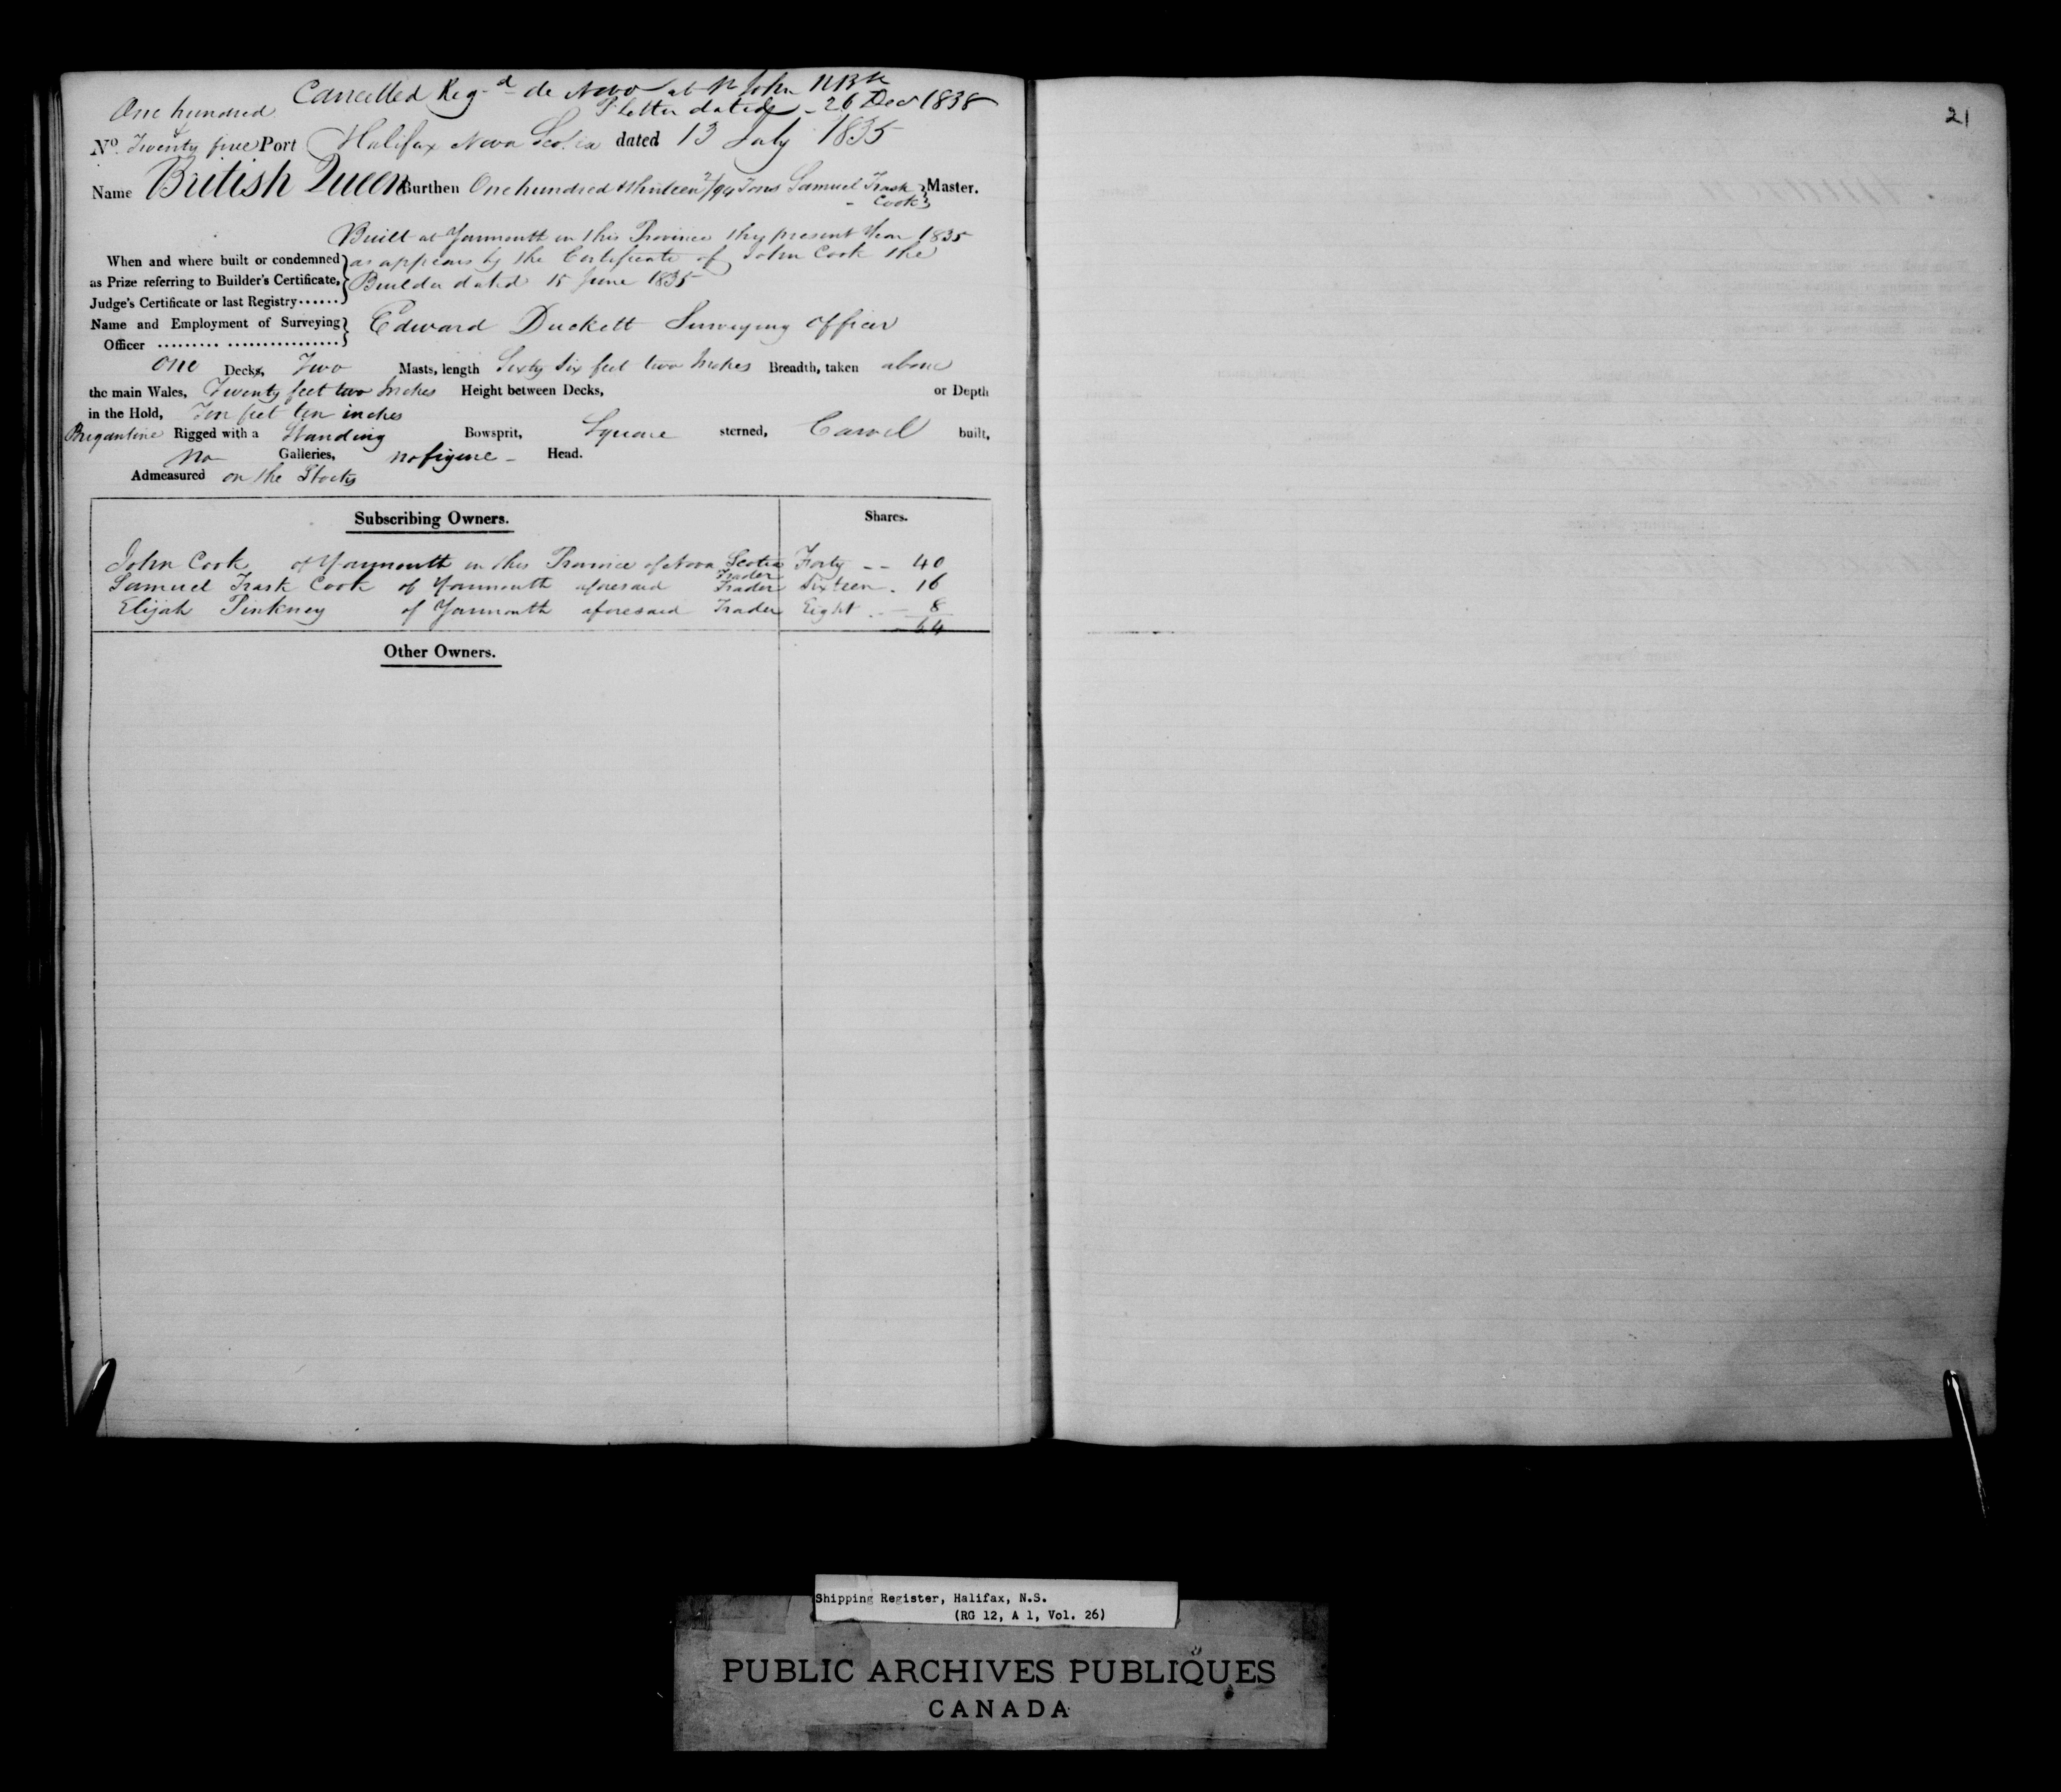 Cancelled Reg-d de Novo at St John NBk
One hundred P letter dated - 26 Decr 1838
&
No. Twenty five Port Halifax Nova Scotia dated 13 July 1835
Name British Queen Burthen One hundred & thirteen 2/94 Tons Samuel Trask } Master.
- Cook }
Built at Yarmouth in this Province the present Year 1835
When and where built or condemned } as appears by the Certificate of John Cook the
as Prize referring to Builder's Certificate, } Builder dated 15 June 1835
Judge's Certificate or last Registry······ }
Name and Employment of Surveying } Edward Duckett Surveying Officer
Officer ......... ................ }
One Decks, Two Masts, length Sixty Six feet two Inches Breadth, taken above
the main Wales, Twenty feet two Inches Height between Decks, or Depth
in the Hold, Ten feet ten inches
Brigantine Rigged with a Standing Bowsprit, Square sterned, Carvel built,
No Galleries, no figure - Head.
Admeasured on the Stocks
Subscribing Owners. Shares.
John Cook of Yarmouth in this Province of Nova Scotia Forty -- 40
Trader
Samuel Trask Cook of Yarmouth aforesaid Trader Sixteen . 16
Elijah Pinkney of Yarmouth aforesaid Trader Eight . - 8
64
Other Owners.
21
Shipping Register, Halifax, N.S.
(RG 12, A 1, Vol. 26)
PUBLIC ARCHIVES PUBLIQUES
CANADA